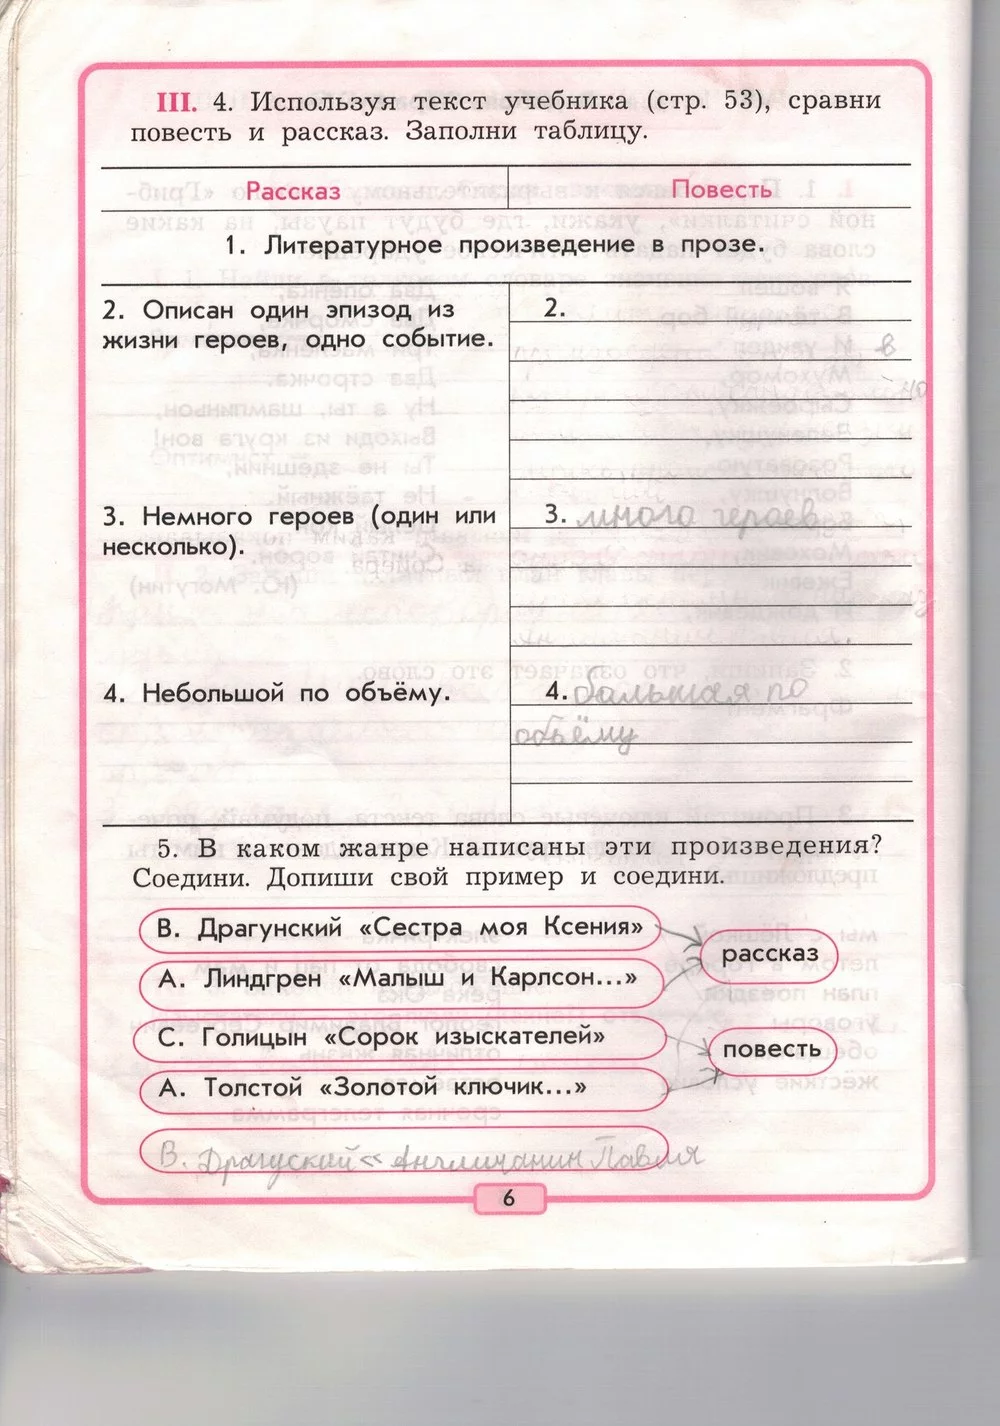 III. 4. Используя текст учебника (стр. 53), сравни
повесть и рассказ. Заполни таблицу.
Рассказ
Повесть
1. Литературное произведение в прозе.
2. Описан один эпизод из
жизни героев, одно событие.
2.
3. Немного героев (один или
несколько).
3. много героев
4. Небольшой по объёму.
4. большая по
объёму
5. В каком жанре написаны эти произведения?
Соедини. Допиши свой пример и соедини.
В. Драгунский «Сестра моя Ксения»
А. Линдгрен «Малыш и Карлсон...»
рассказ
С. Голицын «Сорок изыскателей»
повесть
А. Толстой «Золотой ключик...»
В. Драгуский « Англичанин Павля
6